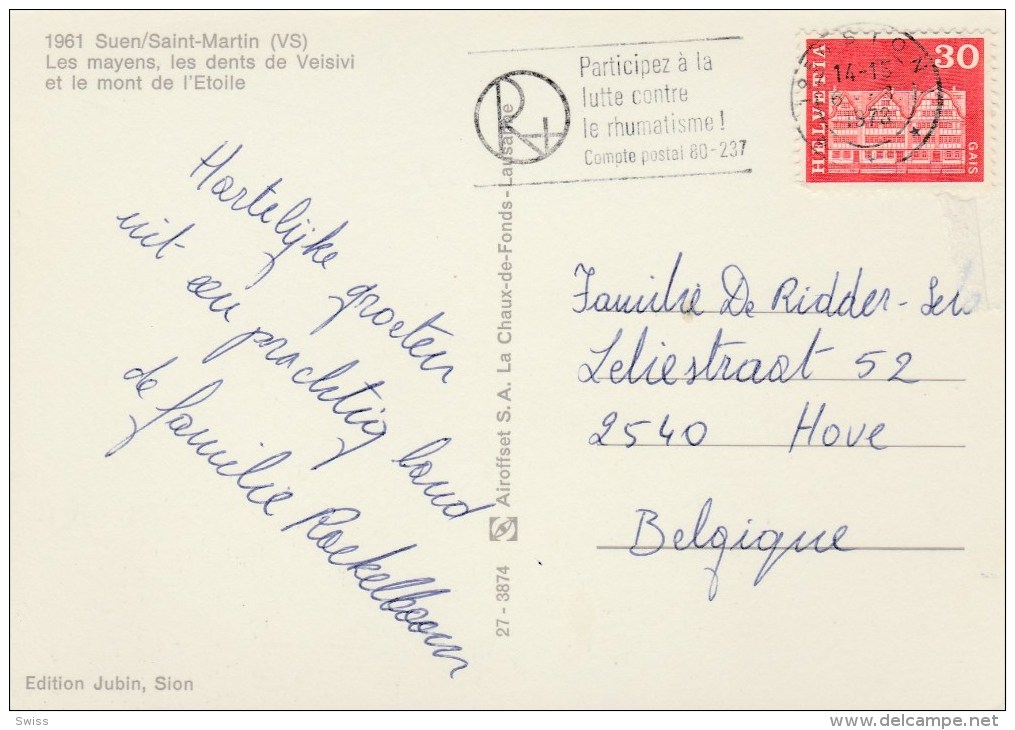 1961 Suen/Saint-Martin (VS)
Les mayens, les dents de Veisivi
et le mont de l'Etoile
Participez à la
lutte contre
le rhumatisme!
Compte postal 80-237
R+
SION
14-15
1973
HELVETIA
30
GAIS
Hartelijke groeten
uit een prachtig land
de familie Roekelboom
Familie De Ridder-
Leliestraat 52
2540 Hove
Belgique
27-3874 Airoffset S.A. La Chaux-de-Fonds-Lausanne
Edition Jubin, Sion
Swiss
www.delcampe.net